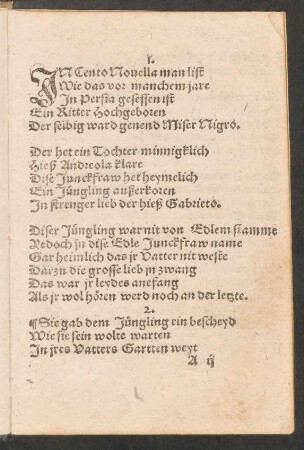 1.
IN Cento Nouella man list
Wie das vor manchem jare
In Persia gesessen ist
Ein Ritter Hochgeboren
Der selbig ward genend Miser Nigro.
Der het ein Tochter minnigklich
Hieß Andreola klare
Dise Junckfraw het heymelich
Ein Jüngling außerkoren
In strenger lieb der hieß Gabrieto.
Diser Jüngling war nit von Edlem stamme
Yedoch jn dise Edle Junckfraw name
Gar heimlich das jr Vatter nit weste
Darzu die grosse lieb jn zwang
Das war jr leydes anefang
Als jr wol hören werd noch an der letzte.
2.
¶Sie gab dem Jüngling ein bescheyd
Wie sie sein wolte warten
In jres Vatters Gartten weyt
A ij